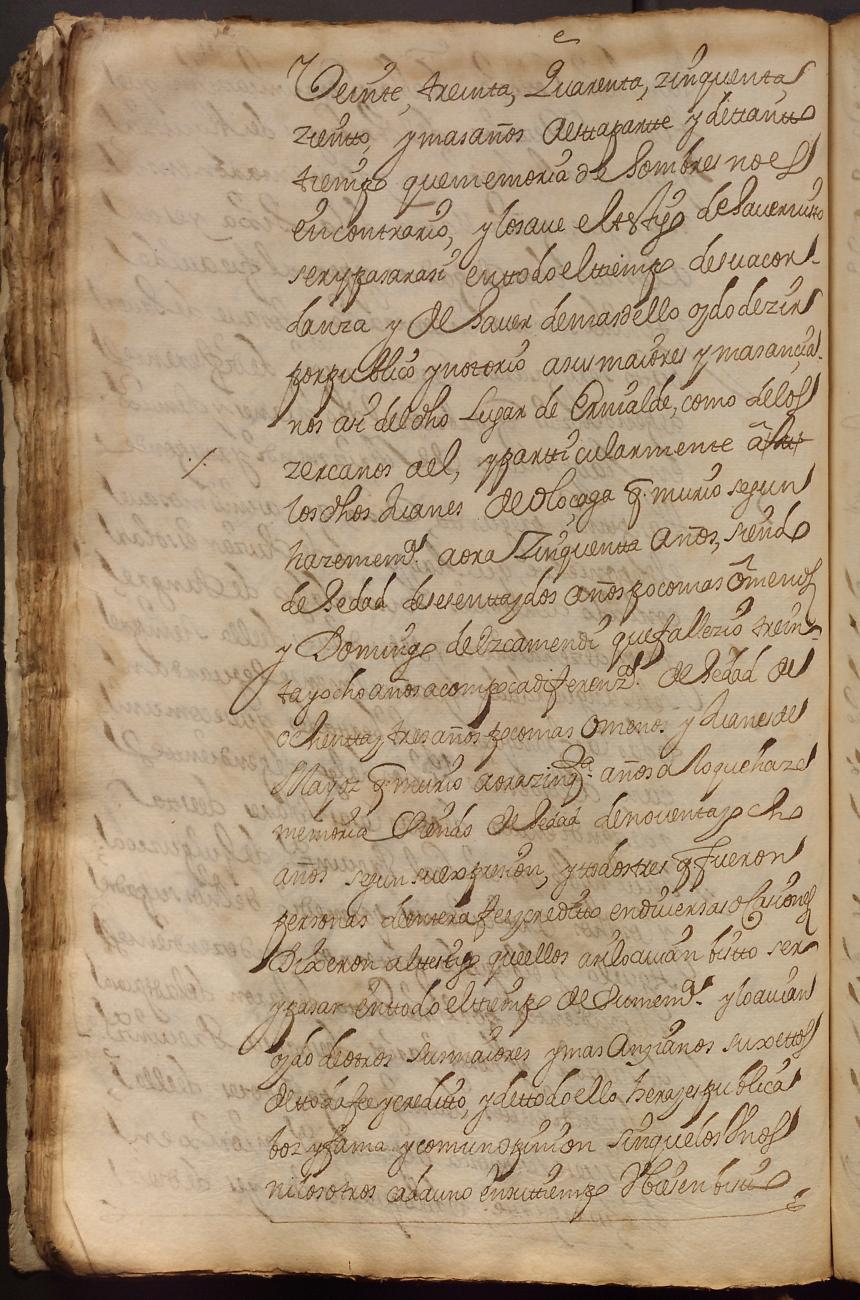 Veinte, treinta, Quarenta, zinquenta
ziento, y mas años aesta parte y detantto
tiempo quememoria de hombres noes
encontrario, y losave eltestigo de haver visto
ser y pasar asi entodo el tiempo desuacor-
danza y de haver demas dello oydo dezir
por publico y notorio asus maiores y mas ancia-
nos asi del dho Lugar de Ernialde, como delos
zercanos ael, y partticularmente a
los dhos Juanes de olozaga q murio segun
haze memª aora Zinquentta años, siendo
de hedad desesenta y dos años poco mas o menos
y Domingo de Izcamendi que fallezio trein-
ta y ocho años a com poca diferenzª de hedad de
ochentta y tres años poco mas o menos y Juanes de
Mayoz q murio aora zinqta años alo que haze
memoria siendo de hedad denoventa y ocho
años segun su expresion, y todos tres q fueron
personas de entera fee y creditto en diversas ocasiones
Dixeron al testigo que ellos asi lo avian bisto ser
y pasar en todo el tiempo de su memª y lo avian
oydo de otros sus maiores y mas Anzianos suxettos
de toda fee y creditto, y de ttodo ello hera y es publica
boz y fama y comun opinion sin que los Unos
ni los otros cada uno en su tiempo Ubiesen bisto